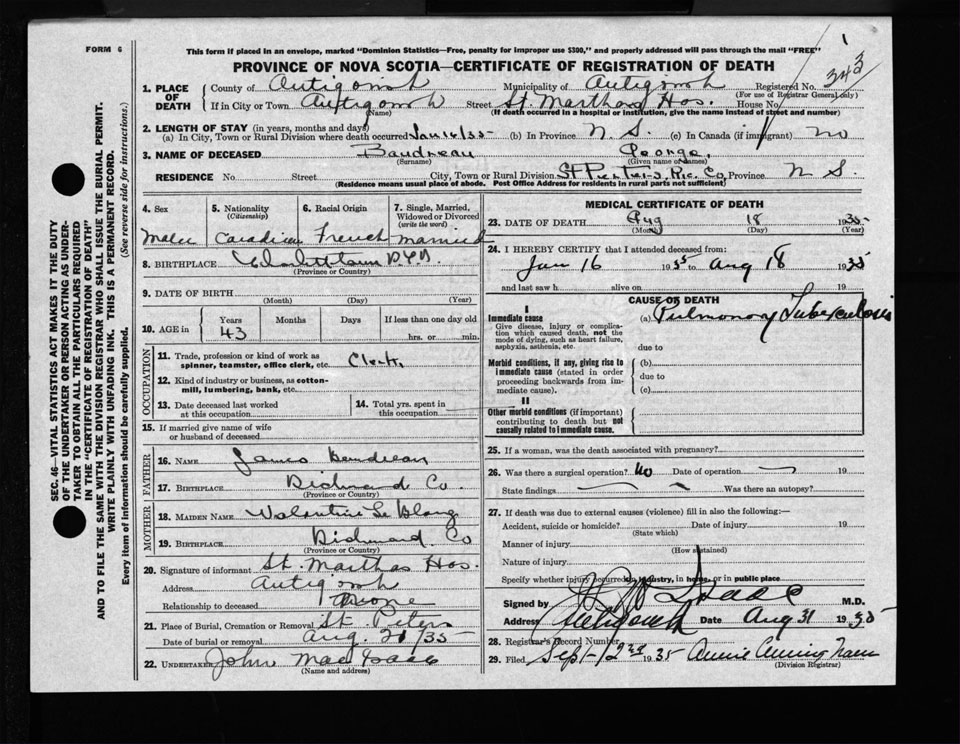 FORM 6
This form if placed in an envelope, marked "Dominion Statistics—Free, penalty for improper use $300," and properly addressed will pass through the mail "FREE"
1
343
PROVINCE OF NOVA SCOTIA—CERTIFICATE OF REGISTRATION OF DEATH
1. PLACE OF DEATH County of Antigonish Municipality of Antigonish Registered No.
(For use of Registrar General only)
If in City or Town Antigonish Street St. Marthas Hos. House No.
(Name) (If death occurred in a hospital or institution, give the name instead of street and number)
2. LENGTH OF STAY (in years, months and days)
(a) In City, Town or Rural Division where death occurred Jan 16/35 (b) In Province N S. (c) In Canada (if immigrant) no
3. NAME OF DECEASED Boudreau George,
(Surname) (Given name or names)
RESIDENCE No. Street City, Town or Rural Division St Peters, Ric. Co, Province N S.
(Residence means usual place of abode. Post Office Address for residents in rural parts not sufficient)
4. Sex 5. Nationality (Citizenship) 6. Racial Origin 7. Single, Married, Widowed or Divorced (write the word)
Male Canadian French Married
8. BIRTHPLACE
(Province or Country)
9. DATE OF BIRTH
(Month) (Day) (Year)
10. AGE in Years Months Days If less than one day old
43 hrs. or min.
OCCUPATION
11. Trade, profession or kind of work as spinner, teamster, office clerk, etc. Clerk,
12. Kind of industry or business, as cotton-mill, lumbering, bank, etc.
13. Date deceased last worked at this occupation
14. Total yrs. spent in this occupation
15. If married give name of wife or husband of deceased
FATHER
16. NAME James Boudreau
17. BIRTHPLACE Richmond Co.
(Province or Country)
MOTHER
18. MAIDEN NAME Valentine Le Blanc
19. BIRTHPLACE Richmond Co
(Province or Country)
20. Signature of informant St. Marthas Hos.
Address Antigonish
Relationship to deceased None
21. Place of Burial, Cremation or Removal St. Peters
Date of burial or removal Aug. 20/35
22. UNDERTAKER John MacIsaac
(Name and address)
MEDICAL CERTIFICATE OF DEATH
23. DATE OF DEATH Aug 18 1935
(Month) (Day) (Year)
24. I HEREBY CERTIFY that I attended deceased from:
Jan 16 1935 to Aug 18 1935
and last saw h alive on 19
CAUSE OF DEATH
I
Immediate cause
Give disease, injury or complication which caused death, not the mode of dying, such as heart failure, asphyxia, asthenia, etc.
(a) Pulmonary Tuberculosis
due to
Morbid conditions, if any, giving rise to immediate cause (stated in order proceeding backwards from immediate cause).
(b)
due to
(c)
II
Other morbid conditions (if important) contributing to death but not causally related to immediate cause.
25. If a woman, was the death associated with pregnancy?
26. Was there a surgical operation? No Date of operation 19
State findings Was there an autopsy?
27. If death was due to external causes (violence) fill in also the following:—
Accident, suicide or homicide? Date of injury 19
(State which)
Manner of injury
(How sustained)
Nature of injury
Specify whether injury occurred in industry, in home, or in public place
Signed by M.D.
Address Antigonish Date Aug 31 1935
28. Registrar's Record Number
29. Filed Sept 12nd 1935 Annie
(Division Registrar)
SEC. 46—VITAL STATISTICS ACT MAKES IT THE DUTY
OF THE UNDERTAKER OR PERSON ACTING AS UNDER-
TAKER TO OBTAIN ALL THE PARTICULARS REQUIRED
IN THE "CERTIFICATE OF REGISTRATION OF DEATH"
AND TO FILE THE SAME WITH THE DIVISION REGISTRAR WHO SHALL ISSUE THE BURIAL PERMIT.
WRITE PLAINLY WITH UNFADING INK. THIS IS A PERMANENT RECORD.
Every item of information should be carefully supplied. (See reverse side for instructions.)